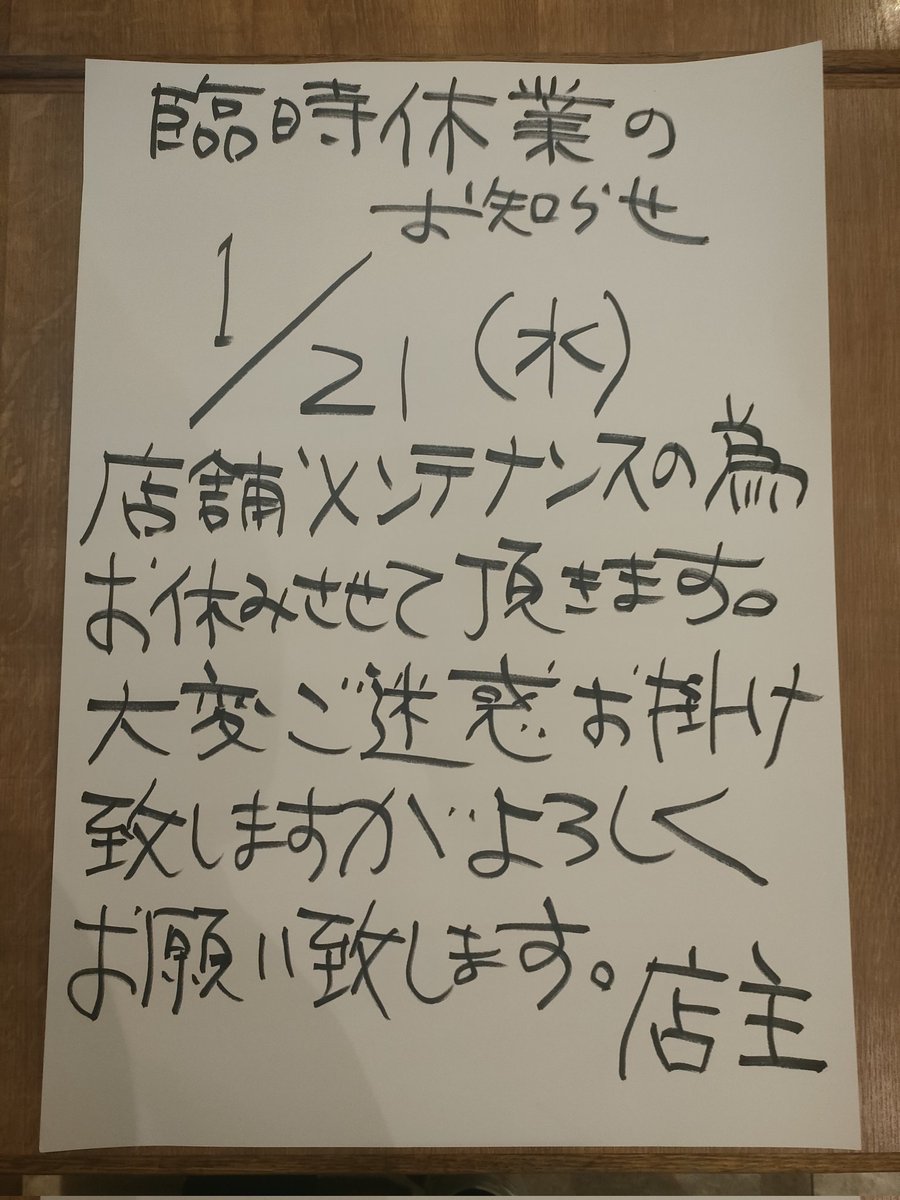 臨時休業の
お知らせ
1/21(水)
店舗メンテナンスの為
お休みさせて頂きます。
大変ご迷惑お掛け
致しますがよろしく
お願い致します。
店主